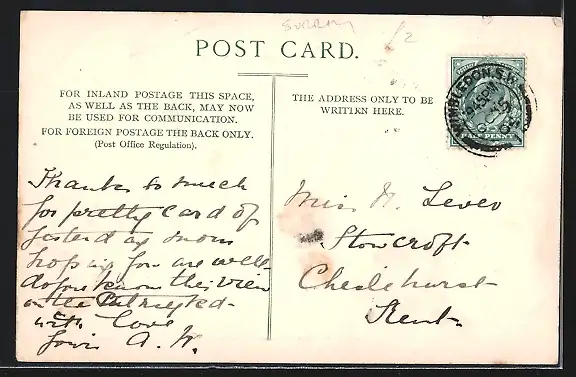 Surrey
/2
POST CARD.
FOR INLAND POSTAGE THIS SPACE,
AS WELL AS THE BACK, MAY NOW
BE USED FOR COMMUNICATION.
FOR FOREIGN POSTAGE THE BACK ONLY.
(Post Office Regulation).
THE ADDRESS ONLY TO BE
WRITTEN HERE.
WIMBLEDON. S.W.
HALF PENNY
Thanks so much
for pretty card of
yesterday morn
hoping you are well
do you know this view
on the
with love
from A. W.
Miss N. Lever
Stowcroft
Chislehurst
Kent